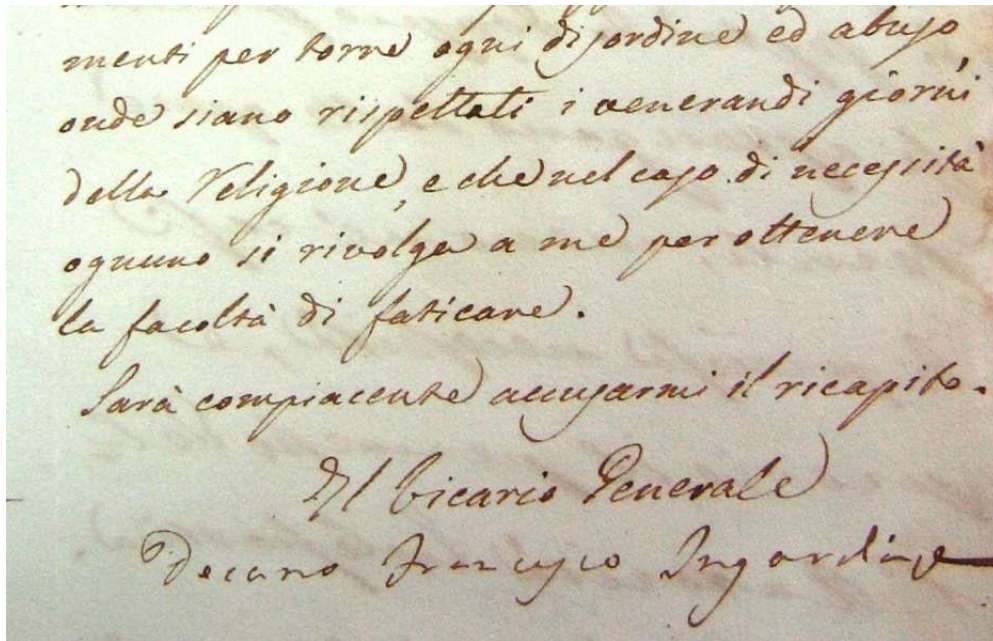 menti per torre ogni disordine ed abuso
onde siano rispettati i venerandi giorni
della Religione, e che nel caso di necessità
ognuno si rivolga a me per ottenere
la facoltà di faticare.
Sarà compiacente accusarmi il ricapito.
Il Vicario Generale
Decano Francesco